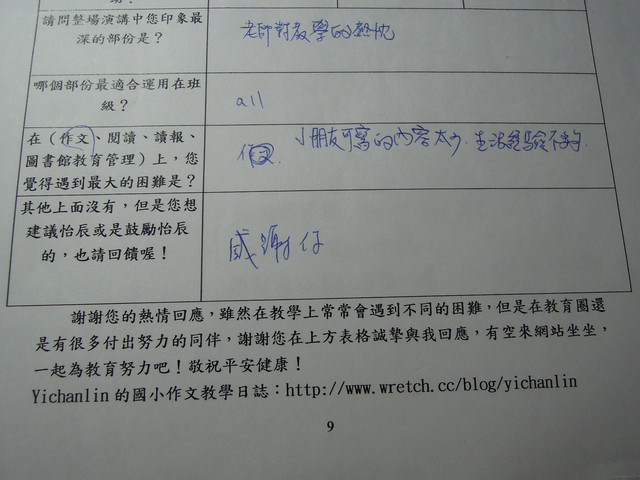 請問整場演講中您印象最
深的部份是？
老師對教學的熱忱
哪個部份最適合運用在班
級？
all
在（作文、閱讀、讀報、
圖書館教育管理）上，您
覺得遇到最大的困難是？
小朋友可寫的內容太少.生活經驗不夠.
其他上面沒有，但是您想
建議怡辰或是鼓勵怡辰
的，也請回饋喔！
感謝你
謝謝您的熱情回應，雖然在教學上常常會遇到不同的困難，但是在教育圈還
是有很多付出努力的同伴，謝謝您在上方表格誠摯與我回應，有空來網站坐坐，
一起為教育努力吧！敬祝平安健康！
Yichanlin 的國小作文教學日誌：http://www.wretch.cc/blog/yichanlin
9